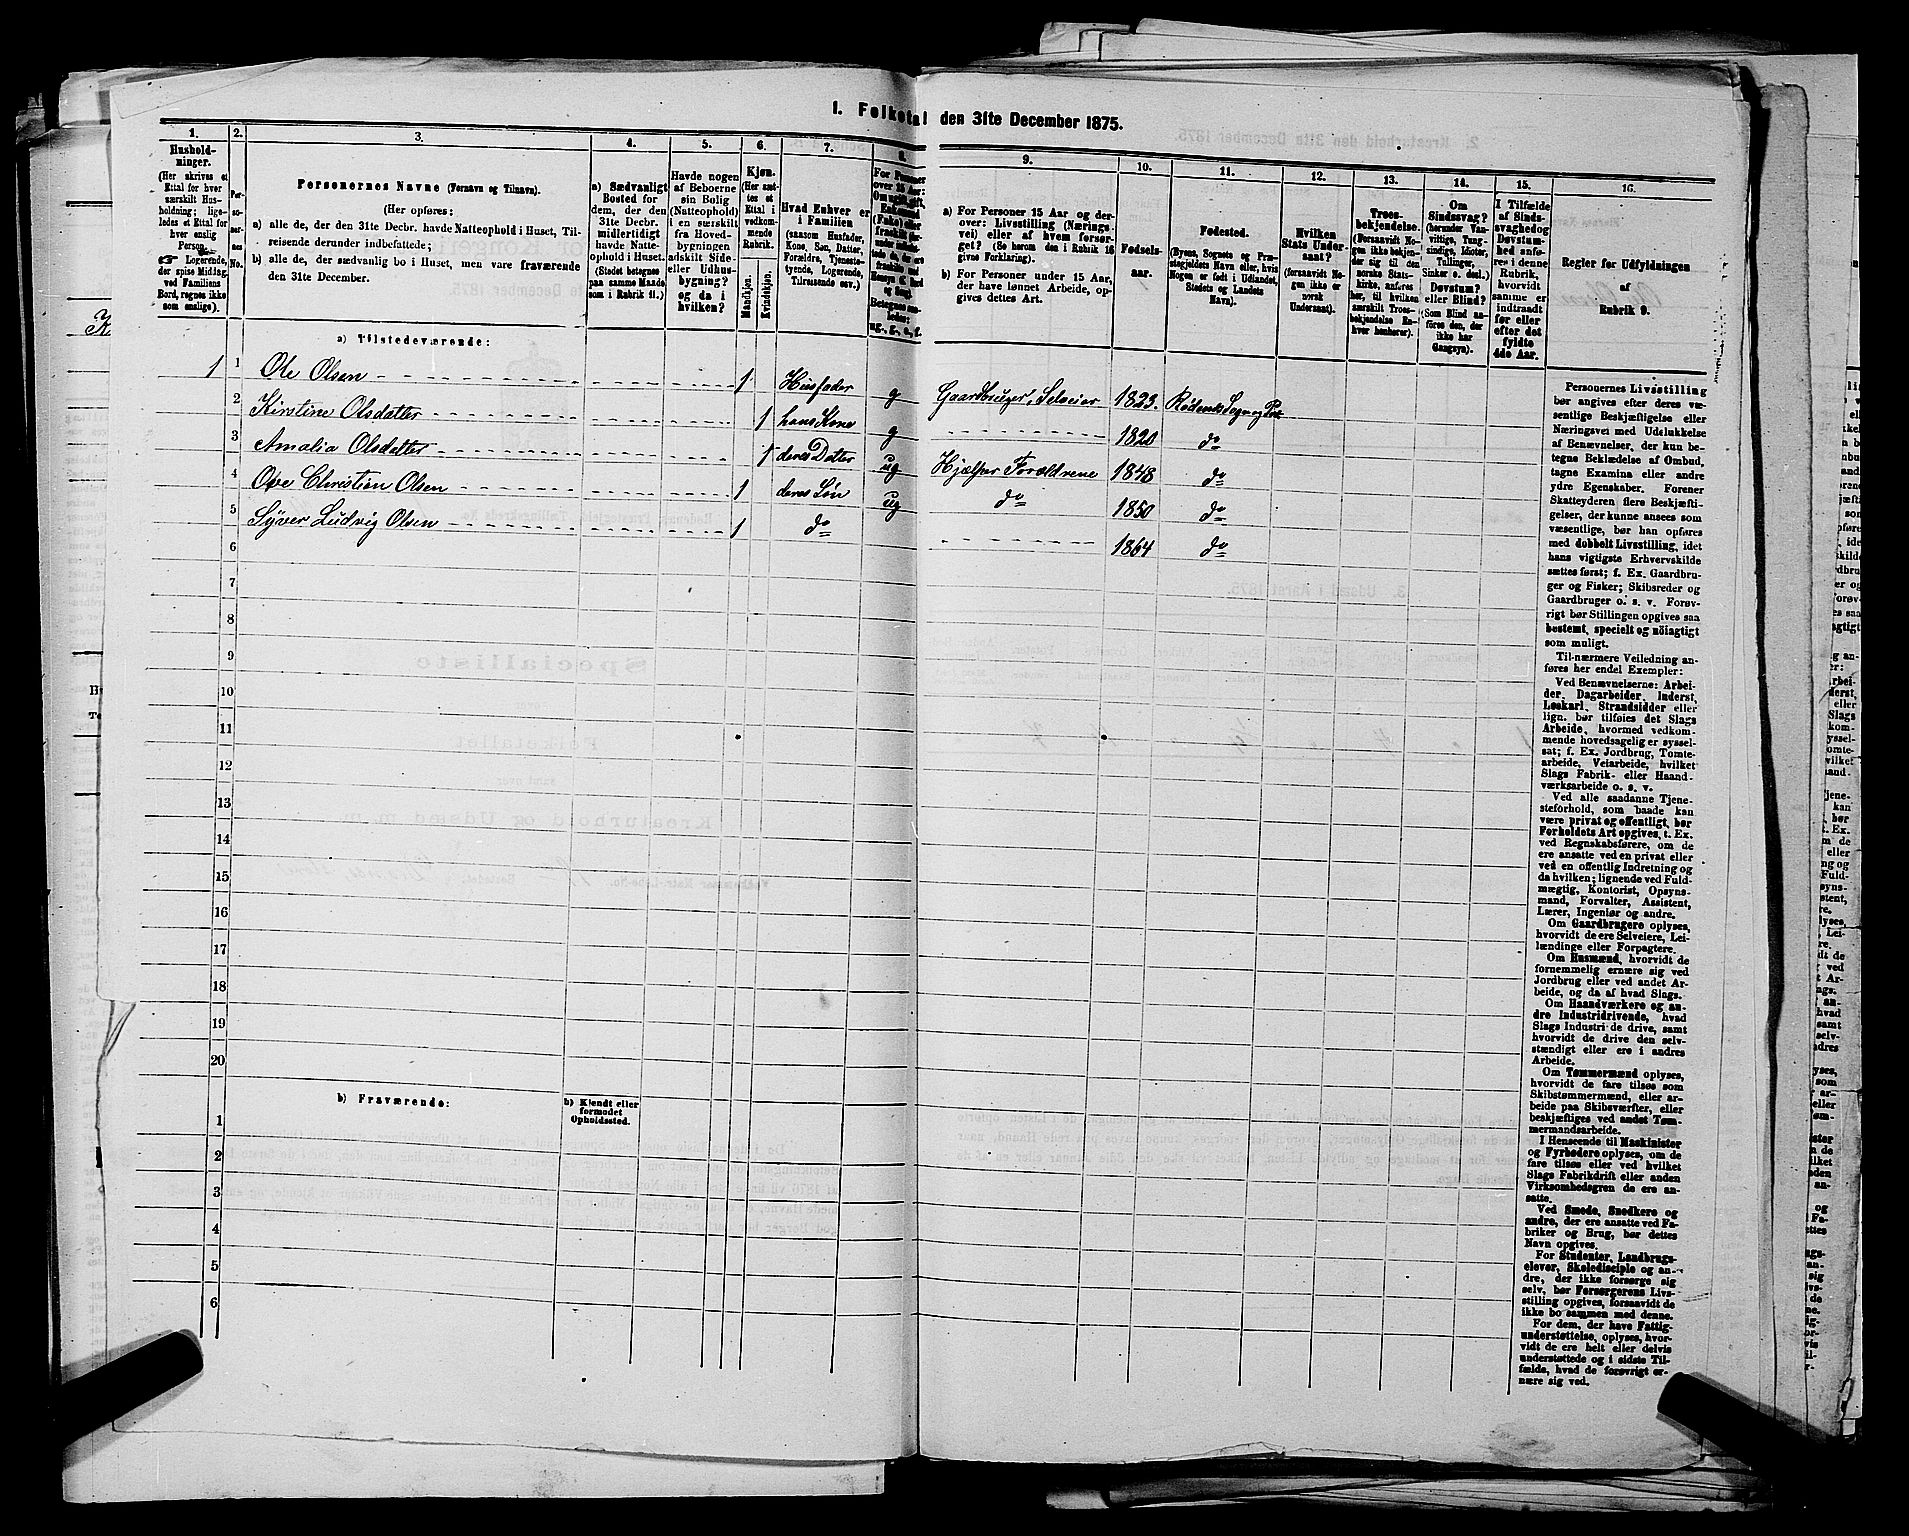 1. Folketal den 31te December 1875.
1.
Hushold-
ninger.
(Her skrives et
Ettal for hver
særskilt Hus-
holdning; lige-
ledes et Ettal for
hver enslig
Person.
☞ Logerende,
der spise Middag
ved Familiens
Bord, regnes ikke
som enslige).
2.
Per-
so-
ner-
nes
No.
3.
Personernes Navne (Fornavn og Tilnavn).
(Her opføres:
a) alle de, der den 31te Decbr. havde Natteophold i Huset, Til-
reisende derunder indbefattede;
b) alle de, der sædvanlig bo i Huset, men vare fraværende
den 31te December.
4.
a) Sædvanligt
Bosted for
dem, der den
31te Decbr.
midlertidigt
havde Natte-
ophold i Huset.
(Stedet betegnes
paa samme Maade
som i Rubrik 11.)
5.
Havde nogen
af Beboerne
sin Bolig
(Natteophold)
i en særskilt
fra Hoved-
bygningen
adskilt Side-
eller Udhus-
bygning?
og da i
hvilken?
6.
Kjøn.
(Her sæt-
tes et
Ettal i
vedkom-
mende
Rubrik.
Mandkjøn.
Kvindekjøn.
7.
Hvad Enhver er
i Familien
(saasom Husfader,
Kone, Søn, Datter,
Forældre, Tjeneste-
tyende, Logerende,
Tilreisende osv.)
8.
For Personer
over 15 Aar:
9.
a) For Personer 15 Aar og der-
over: Livsstilling (Nærings-
vei) eller af hvem forsør-
get? (Se herom den i Rubrik 16
givne Forklaring).
b) For Personer under 15 Aar,
der have lønnet Arbeide, op-
gives dettes Art.
10.
Fødsels-
aar.
11.
Fødested.
(Byens, Sognets og Præ-
stegjeldets Navn eller, hvis
Nogen er født i Udlandet,
Stedets og Landets
Navn).
12.
Hvilken
Stats Under-
saat?
(forsaavidt No-
gen ikke er
norsk
Undersaat).
13.
Troes-
bekjendelse.
(Forsaavidt No-
gen ikke bekjen-
der sig til den
norske Stats-
kirke, anføres
her, til hvilken
særskilt Troes-
bekjendelse En-
hver henhører).
14.
Om
Sindssvag?
(herunder Van-
vittige, Tung-
sindige, Idioter,
Tullinger,
Sinker o. desl.)
Døvstum?
eller Blind?
(Som Blind an-
føres den, der
ikke har
Gangsyn).
15.
I Tilfælde
af Sinds-
svaghed og
Døvstum-
hed anfø-
res i denne
Rubrik,
hvorvidt
samme er
indtraadt
før eller
efter det
fyldte
4de Aar.
16.
Regler for Udfyldningen
af
Rubrik 9.
a) Tilstedeværende:
1 1 Ole Olsen 1 Husfader g Gaardbruger, Selveier 1823. Rødenes Sogn og Præ
2 Kirstine Olsdatter 1 hans Kone g 1820 do
3 Amalia Olsdatter 1 deres Datter ug Hjælper Forældrene 1848 do
4 Ove Christian Olsen 1 deres Søn ug do 1850 do
5 Syver Ludvig Olsen 1 do 1864 do
6
7
8
9
10
11
12
13
14
15
16
17
18
19
20
b) Fraværende:
b) Kjendt eller
formodet
Opholdssted.
1
2
3
4
5
6
Personernes Livsstilling
bør angives efter deres væ-
sentlige Beskjæftigelse eller
Næringsvei med Udelukkelse
af Benævnelser, der kun be-
tegne Beklædelse af Ombud,
tagne Examina eller andre
ydre Egenskaber. Forener
Skatteyderen flere Beskjæfti-
gelser, der kunne ansees som
væsentlige, bør han opføres
med dobbelt Livsstilling, idet
hans vigtigste Erhvervskilde
sættes først; f. Ex. Gaardbru-
ger og Fisker; Skibsreder og
Gaardbruger o. s. v. Forøv-
rigt bør Stillingen opgives saa
bestemt, specielt og nöiagtigt
som muligt.
Til nærmere Veiledning an-
føres her endel Exempler:
Ved Benævnelserne: Arbei-
der, Dagarbeider, Inderst,
Løskarl, Strandsidder eller
lign. bør tilføies det Slags
Arbeide, hvormed vedkom-
mende hovedsagelig er syssel-
sat; f. Ex. Jordbrug, Tomte-
arbeide, Veiarbeide, hvilket
Slags Fabrik- eller Haand-
værksarbeide o. s. v.
Ved alle saadanne Tjene-
steforhold, som baade kan
være privat og offentligt, bør
Forholdets Art opgives, t. Ex.
ved Regnskabsførere, om de
ere ansatte ved en privat eller
ved en offentlig Indretning og
da hvilken; lignende ved Fuld-
mægtig, Kontorist, Opsyns-
mand, Forvalter, Assistent,
Lærer, Ingeniør og andre.
Om Gaardbrugere oplyses,
hvorvidt de ere Selveiere, Lei-
lændinge eller Forpagtere.
Om Husmænd, hvorvidt de
fornemmelig ernære sig ved
Jordbrug eller ved andet Ar-
beide, og da af hvad Slags.
Om Haandværkere og an-
dre Industridrivende, hvad
Slags Industri de drive, samt
hvorvidt de drive den selv-
stændigt eller ere i andres
Arbeide.
Om Tømmermænd oplyses,
hvorvidt de fare tilsøs som
Skibstømmermænd, eller ar-
beide paa Skibsværfter, eller
beskjæftiges ved andet Tøm-
mermandsarbeide.
I Henseende til Maskinister
og Fyrbødere oplyses, om de
fare tilsøs eller ved hvilket
Slags Fabrikdrift eller anden
Virksomhedsgren de ere an-
satte.
Ved Smede, Snedkere og
andre, der ere ansatte ved Fa-
briker og Brug, bør dettes
Navn opgives.
For Studenter, Landbrugs-
elever, Skoledisciple og an-
dre, der ikke forsørge sig
selv, bør Forsørgerens Livs-
stilling opgives, forsaavidt de
ikke bo sammen med denne.
For dem, der have Fattig-
understøttelse, oplyses, hvor-
vidt de ere helt eller delvis
understøttede og i sidste Til-
fælde, hvad de forøvrigt er-
nære sig ved.